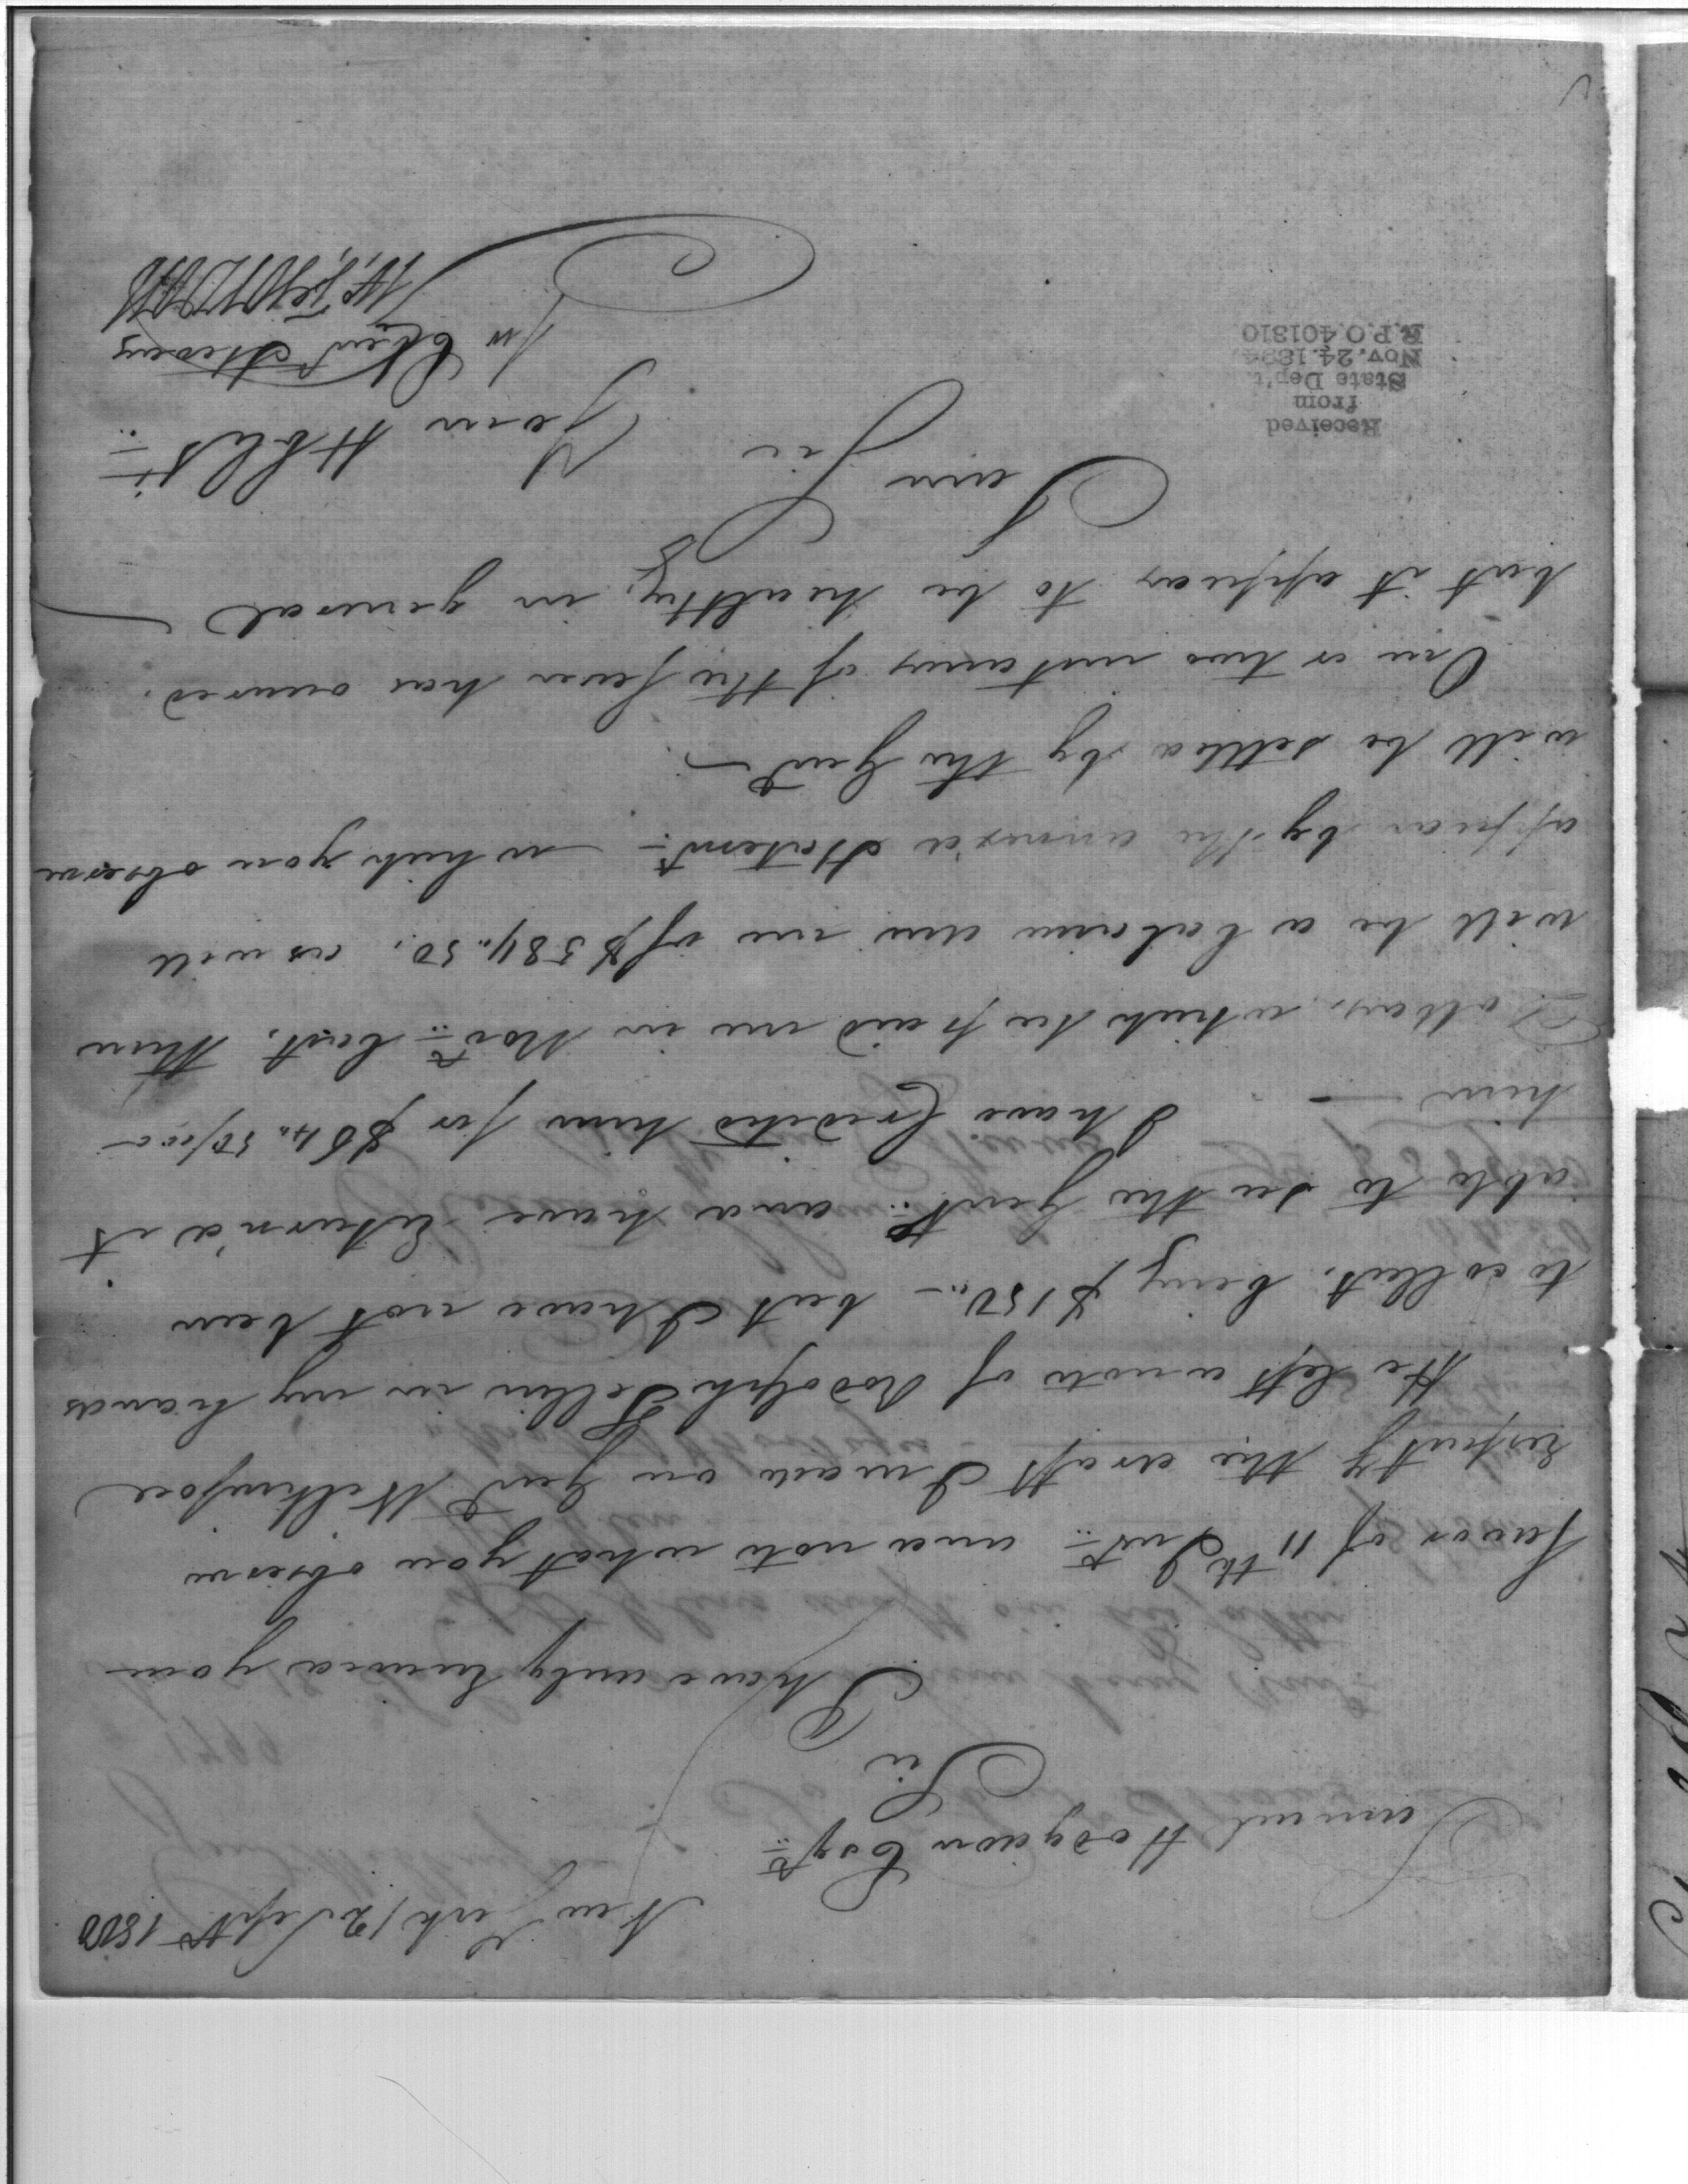 New York 12 Sept 1800
Samuel Hodgdon Esqr
Sir
I have duly received your
favor of 11th Inst and note what you observe
respectg the draft I made on Genl Wilkinson
He left a note of Rodolph Tellier in my hands
to collect, being $150 - but I have not been
able to see the Gent and have return'd it
him - I have Credited him for $64.50/100
Dollars, which he paid me in Novr last, there
will be a balance due me of $384.50, as will
appear by the annex'd Statemt - which you observe
will be settled by the Genl -
One or two instances of the fever has occured.
but it appears to be healthy, in general
I am Sir
Your Hble St
Received
from
State Dep't.
Nov. 24. 1894
R.P.O. 401810